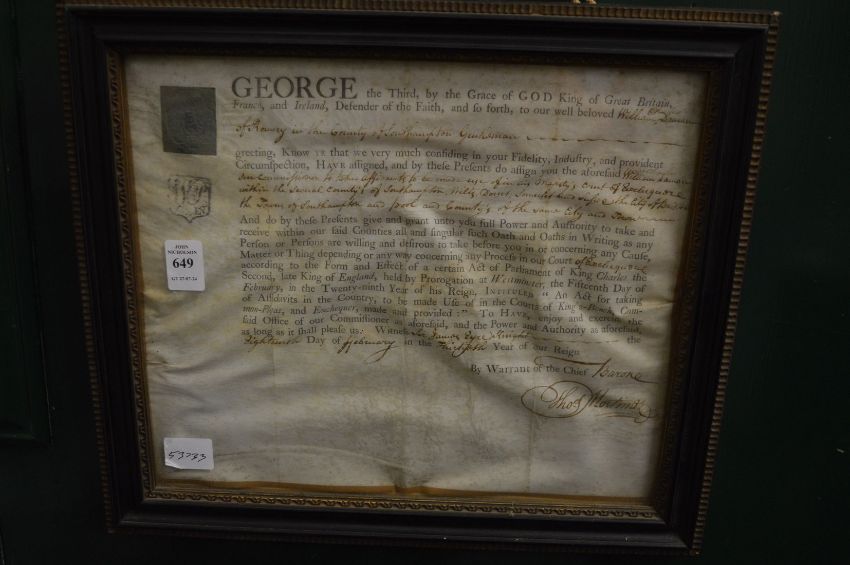 GEORGE the Third, by the Grace of GOD King of Great Britain,
France, and Ireland, Defender of the Faith, and so forth, to our well beloved William
of Romsey in the County of Southampton Gentleman
greeting, Know YE that we very much confiding in your Fidelity, Industry, and provident
Circumspection, HAVE assigned, and by these Presents do assign you the aforesaid William
our Commissioner to take Affidavits to be made use of in his Majesty's Court of Exchequer
within the several County's of Southampton Wilts Dorset Somerset and the City of
the Town of Southampton and Pool and County's of the same City and Town
And do by these Presents give and grant unto you full Power and Authority to take and
receive within our said Counties all and singular such Oath and Oaths in Writing as any
Person or Persons are willing and desirous to take before you in or concerning any Cause,
Matter or Thing depending or any way concerning any Process in our Court of Exchequer
according to the Form and Effect of a certain Act of Parliament of King Charles the
Second, late King of England, held by Prorogation at Westminster, the Fifteenth Day of
February, in the Twenty-ninth Year of his Reign, INTITULED "An Act for taking
of Affidavits in the Country, to be made Use of in the Courts of King's-Bench, Com-
mon-Pleas, and Exchequer, made and provided:" To HAVE, enjoy and exercise the
said Office of our Commissioner as aforesaid, and the Power and Authority as aforesaid,
as long as it shall please us. Witness Sir James Eyre Knight the
Eighteenth Day of February in the Thirtieth Year of our Reign
By Warrant of the Chief Baron
Thos
JOHN
NICHOLSON
649
GT 27-07-24
53733